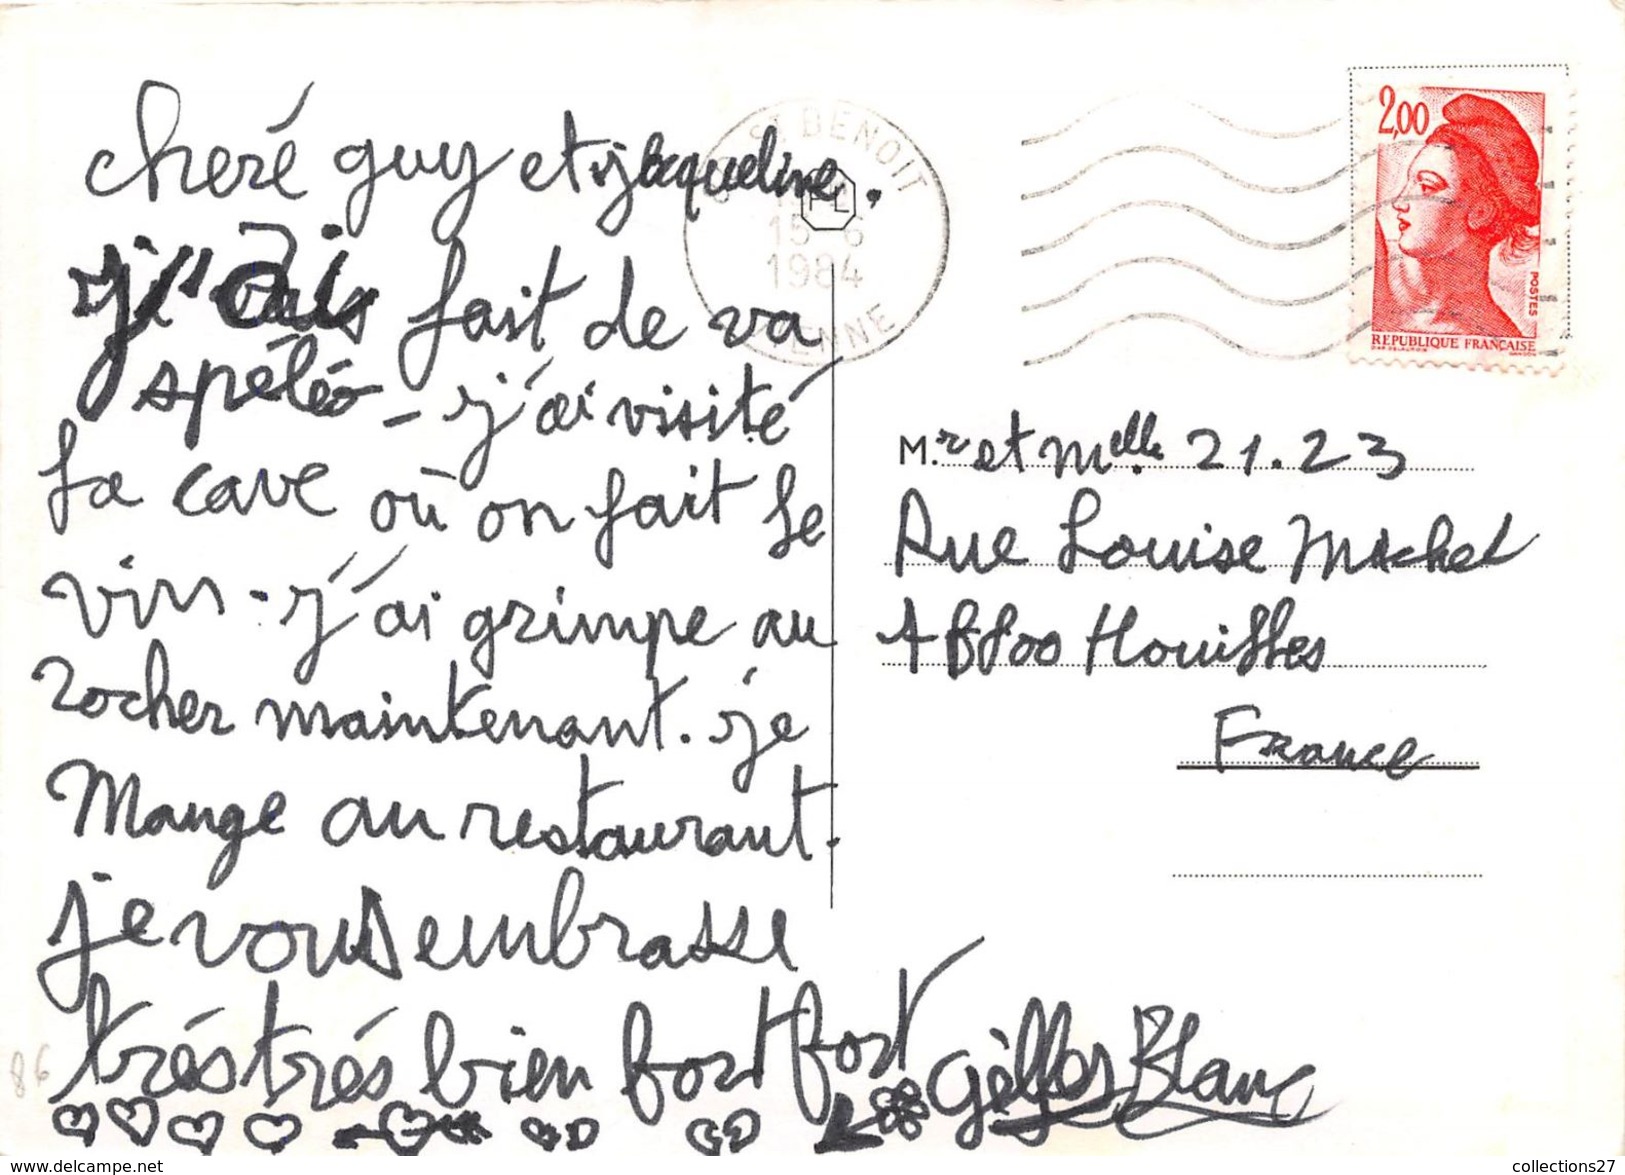 cheré guy et jacqueline.
j'ais fait de va
spéléo - j'ai visité
La cave où on fait le
vin. j'ai grimpe au
rocher maintenant. je
Mange au restaurant.
je vous embrasse
trés trés bien fort fort
Gilles Blanc
ST BENOIT
15-6
1984
VIENNE
PL
2,00
POSTES
REPUBLIQUE FRANÇAISE
M.r et Melle 21.23
Rue Louise Michel
Houilles
France
86
collections27